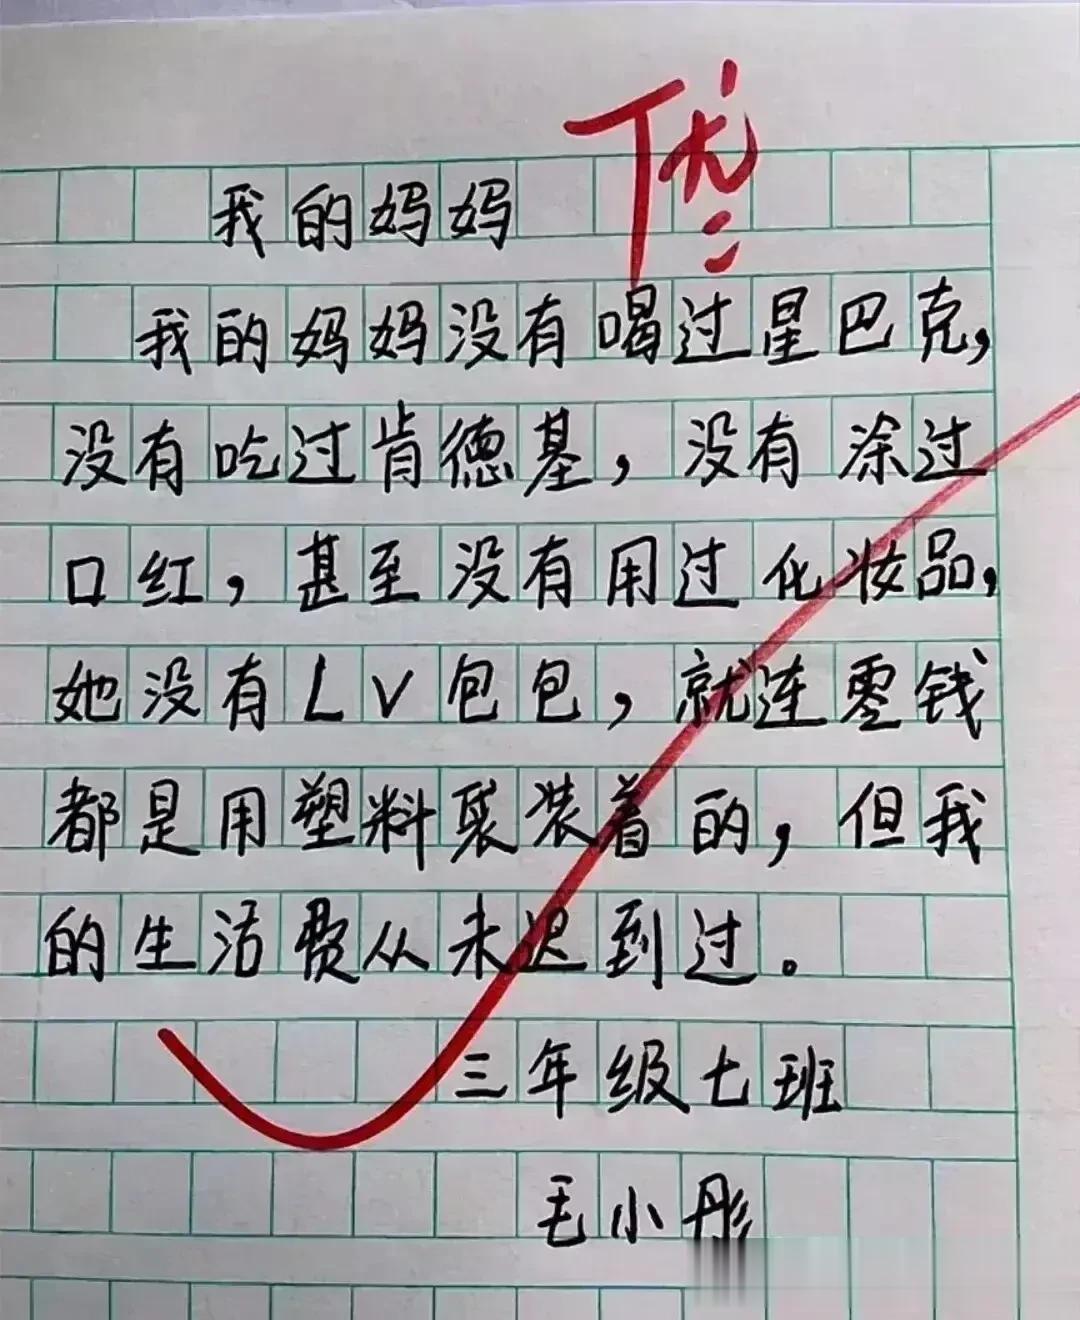 优
我的妈妈
我的妈妈没有喝过星巴克,
没有吃过肯德基,没有涂过
口红,甚至没有用过化妆品,
她没有LV包包,就连零钱
都是用塑料袋装着的,但我
的生活费从未迟到过。
三年级七班
毛小彤